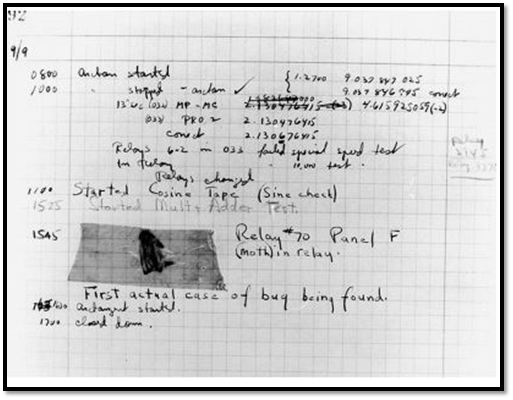 92
9/9
0800 Antan started
1000 " stopped - antan ✓ { 1.2700 9.037 847 025
9.037 846 995 correct
13"uc (032) MP - MC 2.130476415 (-3) 4.615925059(-2)
(033) PRO 2 2.130476415
correct 2.130676415
Relays 6-2 in 033 failed special speed test
in relay " 10,000 test.
Relays changed
1100 Started Cosine Tape (Sine check)
1525 Started Mult + Adder Test.
1545 Relay #70 Panel F
(moth) in relay.
First actual case of bug being found.
1630 antangent started.
1700 closed down.
Relay